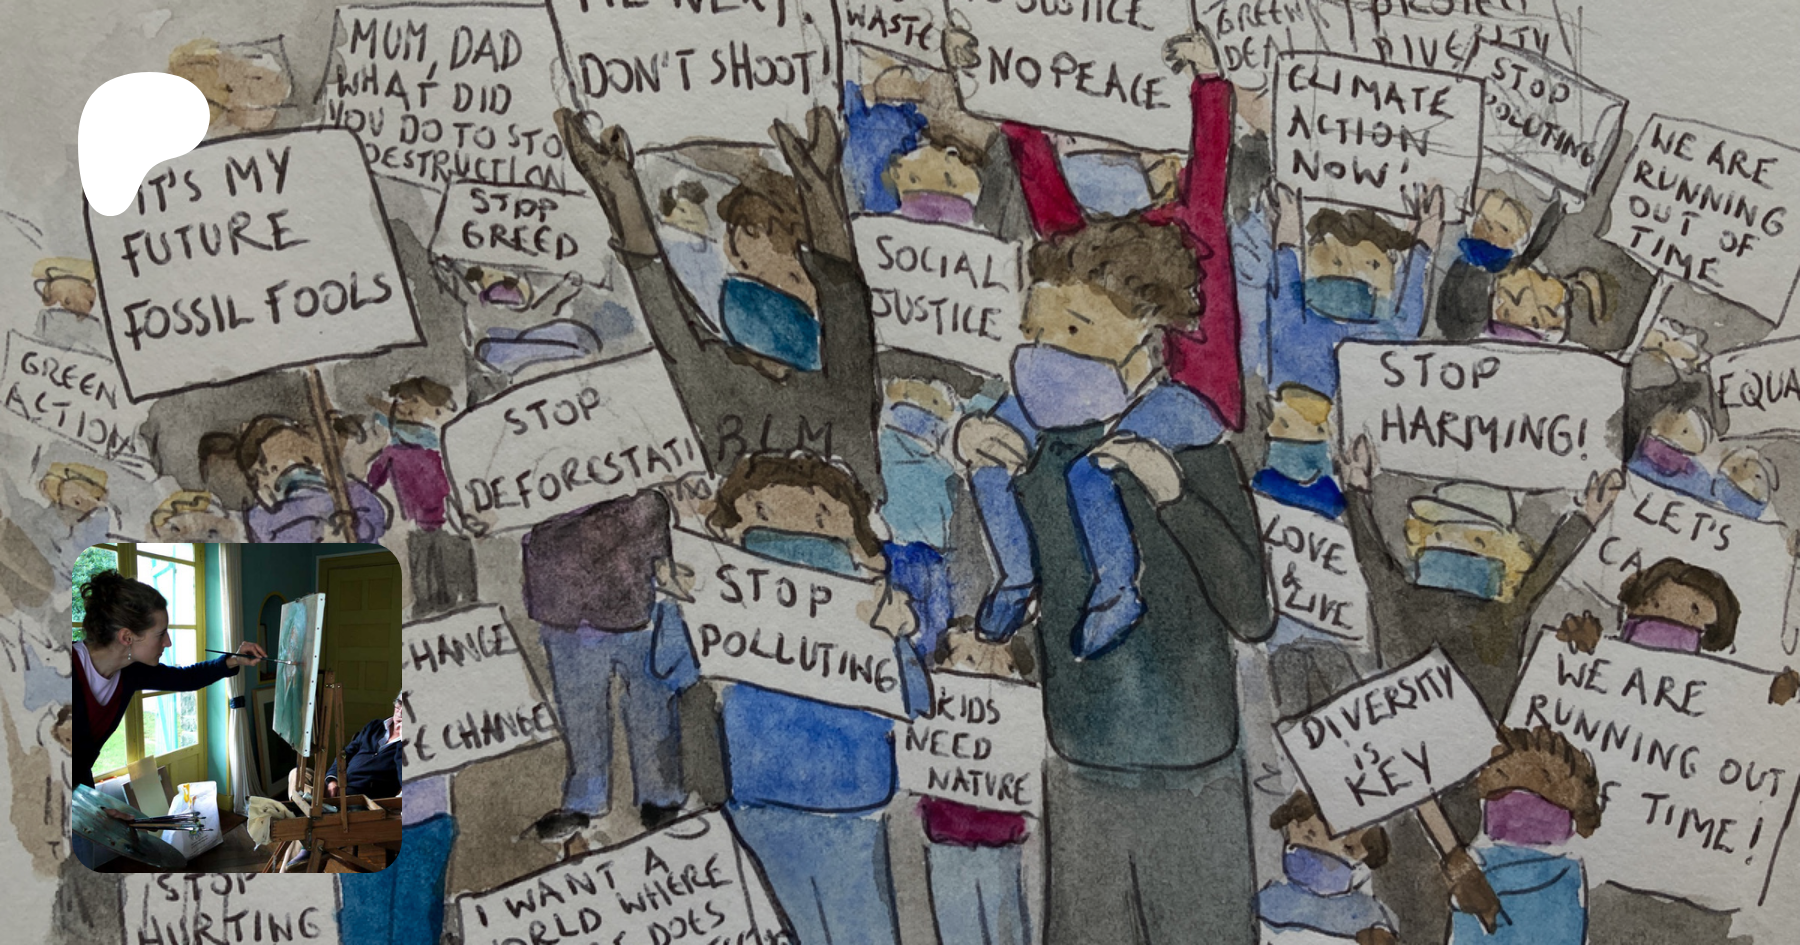 MUM, DAD
WHAT DID
YOU DO TO STO
DESTRUCTION
DON'T SHOOT!
WASTE
JUSTICE
NO PEACE
GREEN
DEAL
CLIMATE
ACTION
NOW!
STOP
POLLUTING
WE ARE
RUNNING
OUT OF
TIME
IT'S MY
FUTURE
FOSSIL FOOLS
STOP
GREED
SOCIAL
JUSTICE
GREEN
ACTION
STOP
DEFORESTATI
BLM
STOP
HARMING!
EQUA
LET'S
CA
LOVE
&
LIVE
STOP
POLLUTING
CHANGE
CHANGE
KIDS
NEED
NATURE
DIVERSITY
IS
KEY
WE ARE
RUNNING OUT
F TIME!
STOP
HURTING
I WANT A
ORLD WHERE
DOES